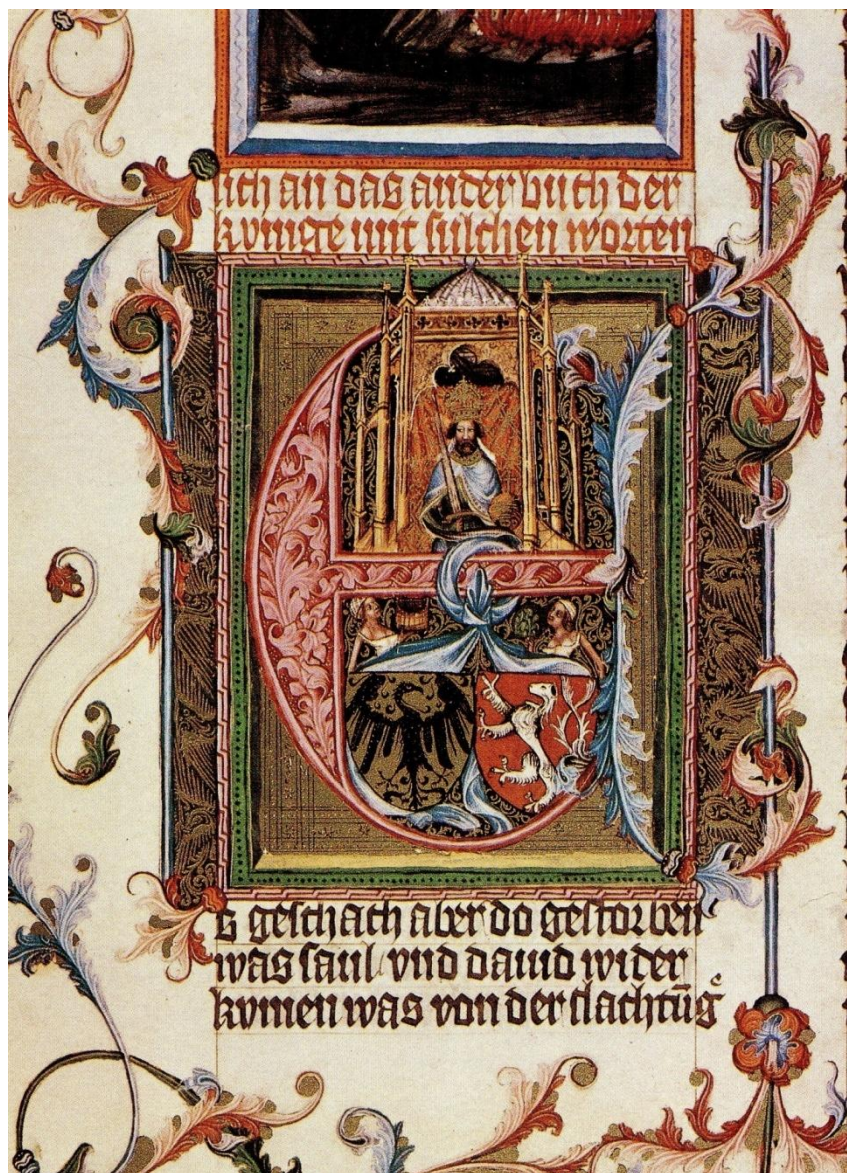 lich an das ander buch der
kvnige mit sulchen worten
Es geschach aber do gestorben
was saul vnd dauid wider
kvmen was von der slachtūg